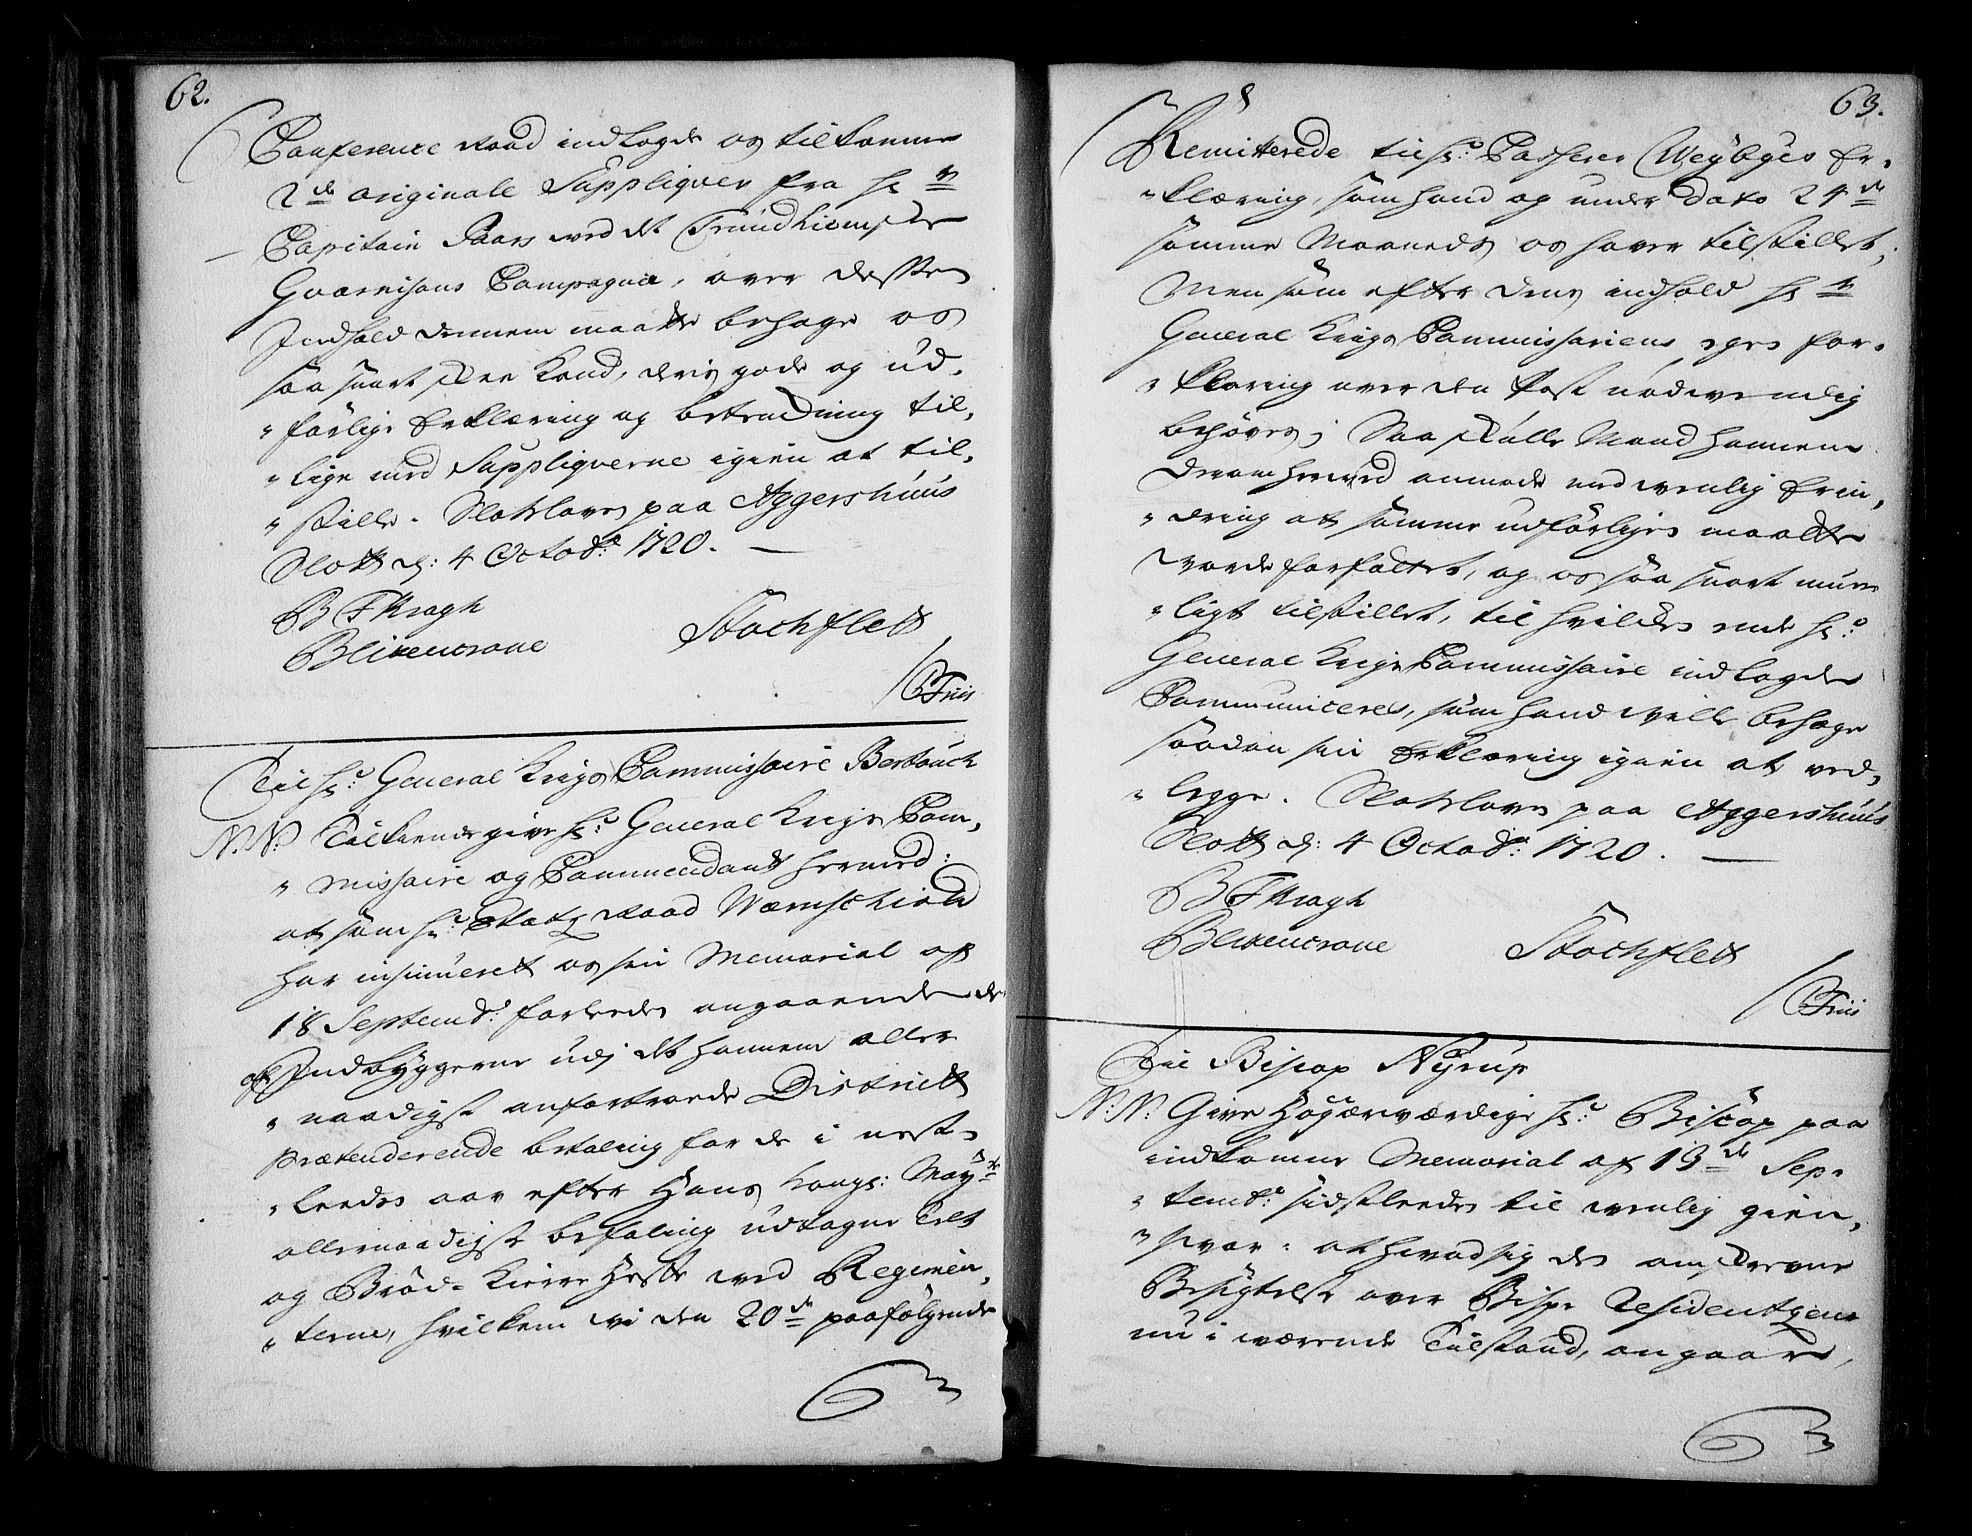 62.
Conference Raad indlagde os tilkomne
2de originale Suppliqver fra Hr
Capitain Paars ved det Trundhiemske
Gvarnisons Compagnie, over dessen
Indhold dennem maatte behage os
saa snart skee kand, deris gode og ud-
„förlige Erklæring og betenckning til-
„lige med Suppliqverne igien at til-
„stille. Slotsloven paa Aggershuus
Slott d: 4 Octobr: 1720.
B F Kragh
Blixencrone Stochflett
CFriis
Til Hr: General Krigs Commissaire Berbouch
N:N: Tilkiendegive Hr: General Krigs Com-
„missaire og Commendant hermed:
at som Hr: Etatz Raad Wærnschiold
har insinueret os sin Memorial af
18 Septembr: forleden angaaende de
af Indbyggerne udj det hannem aller
„naadigst anfortroede District
Prætenderende betaling for de i nest-
„leedes aar efter Hans Kongl: Mayts
allernaadigste befaling udtagne Telt
og Bröd-Kierre Heste ved Regimen-
„terne, hvilken vi den 20de paafölgende
63.
Remitterede til Hr: Casserer Weybyes Er-
„klæring, som hand og under Dato 24de
samme Maaneds os haver tilstillet,
Men som efter dens indhold Hr
General Krigs Commissariens egen for-
„klaring over den Post nödvendig
behöves; Saa skulle Mand hannem
derom herved anmode med venlig Erin-
„dring at samme udförligen maatte
vorde forfattet, og os saa snart mue-
„ligt tilstillet, til hvilcken ende Hr:
General Krigs Commissaire indlagde
Communiceres, som hand ville behage
saadan sin Erklæring igien at ved-
„legge. Slotsloven paa Aggershuus
Slott d: 4 Octobr: 1720.
B F Kragh
Blixencrone Stochflett
CFriis
Til Biscop Nyrup
N:N: Give Högærværdige Hr: Biscop paa
indkomne Memorial af 13de Sep-
„tembr: sidstleeden til venlig gien-
„svar: at hvad sig den omskrevne
Besigtelse over Bispe Residentzen
nu i værende Tilstand, angaar,